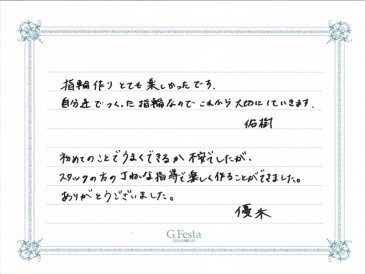 指輪作りとても楽しかったです。
自分達でつくった指輪なのでこれから大切にしていきます。
佑樹
初めてのことでうまくできるか不安でしたが、
スタッフの方の丁ねいな指導で楽しく作ることができました。
ありがとうございました。
優
G.Festa